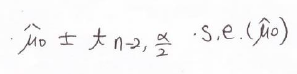 · μ̂₀ ± t n-2, α/2 · s.e.(μ̂₀)